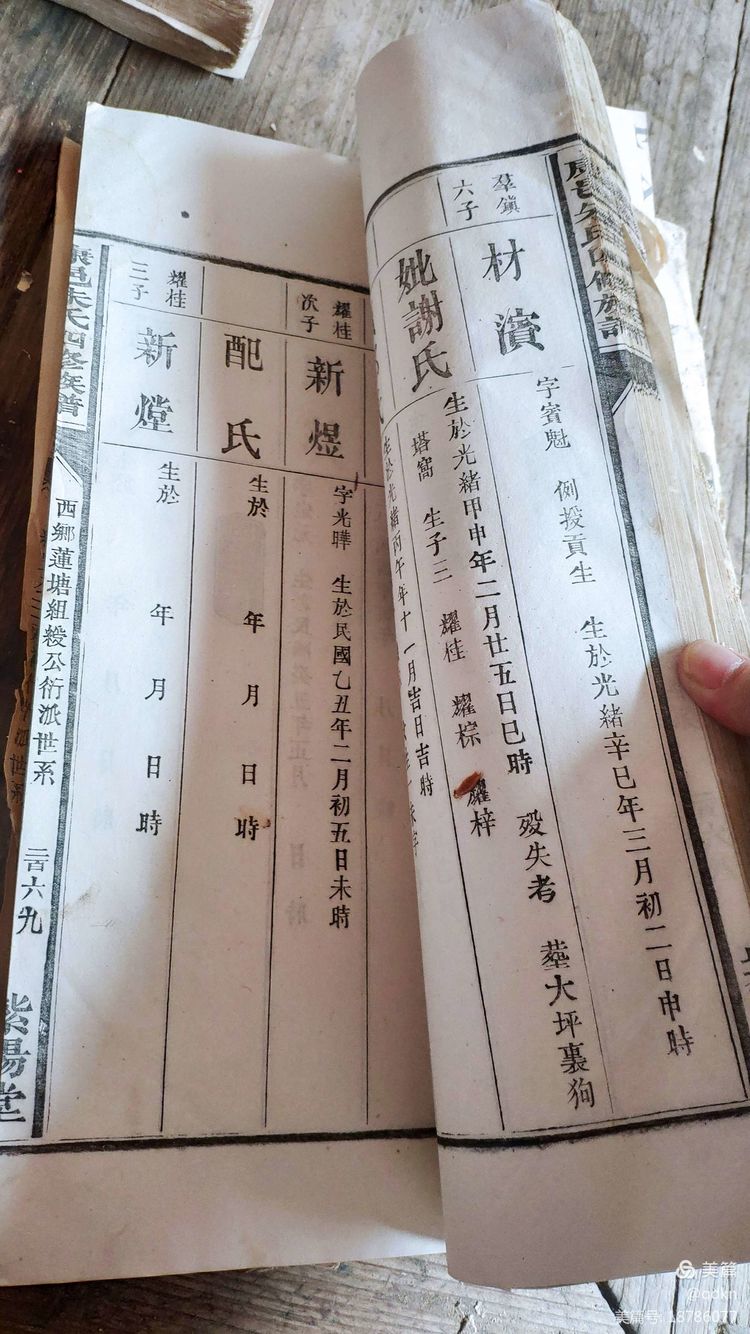 羣鎮
六子
材濱
字賓魁 例投貢生 生於光緒辛巳年三月初二日申時
妣謝氏
生於光緒甲申年二月廿五日巳時 歿失考 塟大坪裏狗
塔窩 生子三 耀桂 耀棕 耀梓
生於光緒丙午年十一月吉日吉時
耀桂
次子
新煜
字光曄 生於民國乙丑年二月初五日未時
配氏
生於 年 月 日 時
耀桂
三子
新熞
生於 年 月 日 時
康邑朱氏四修族譜
西鄉蓮塘組綬公衍派世系
二百六九
紫陽堂
美篇
@qdkn
美篇号: 18786077